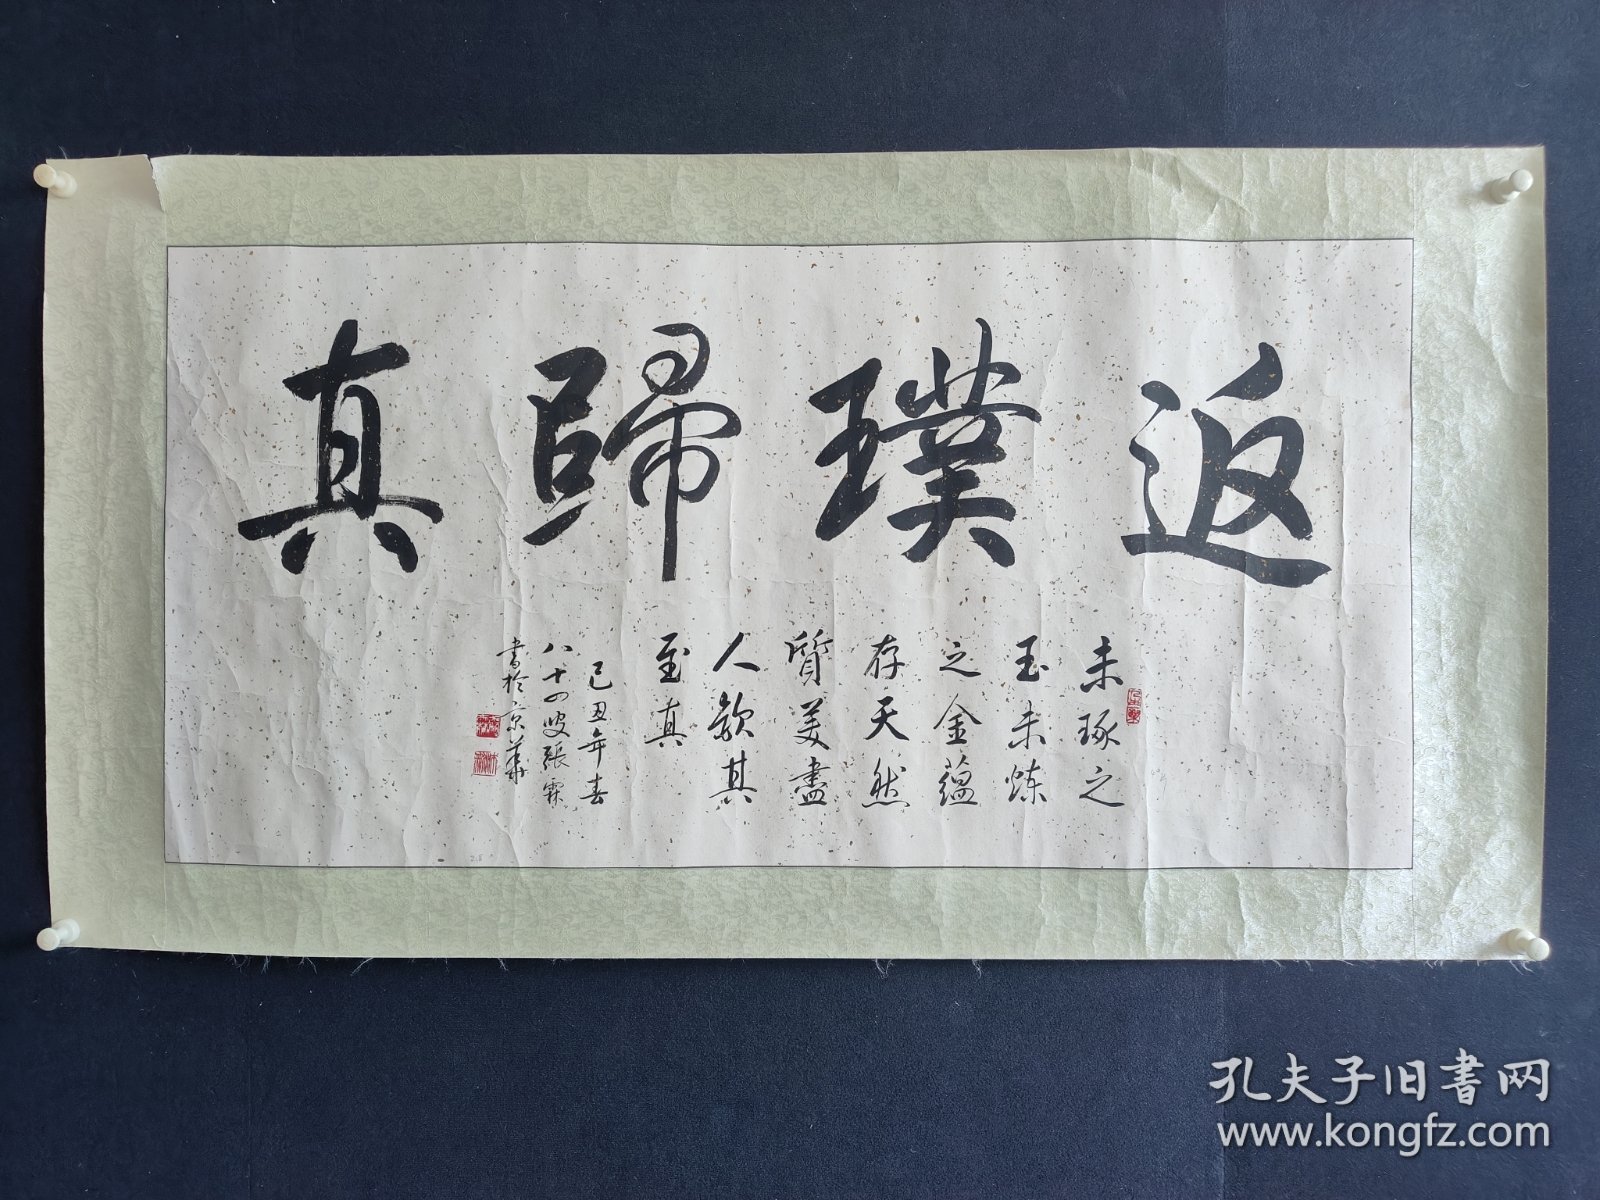 返璞歸真
未琢之
玉未炼
之金蕴
存天然
質美盡
人歎其
至真
己丑年春
八十四叟張霖
書於京華
孔夫子旧書网
www.kongfz.com